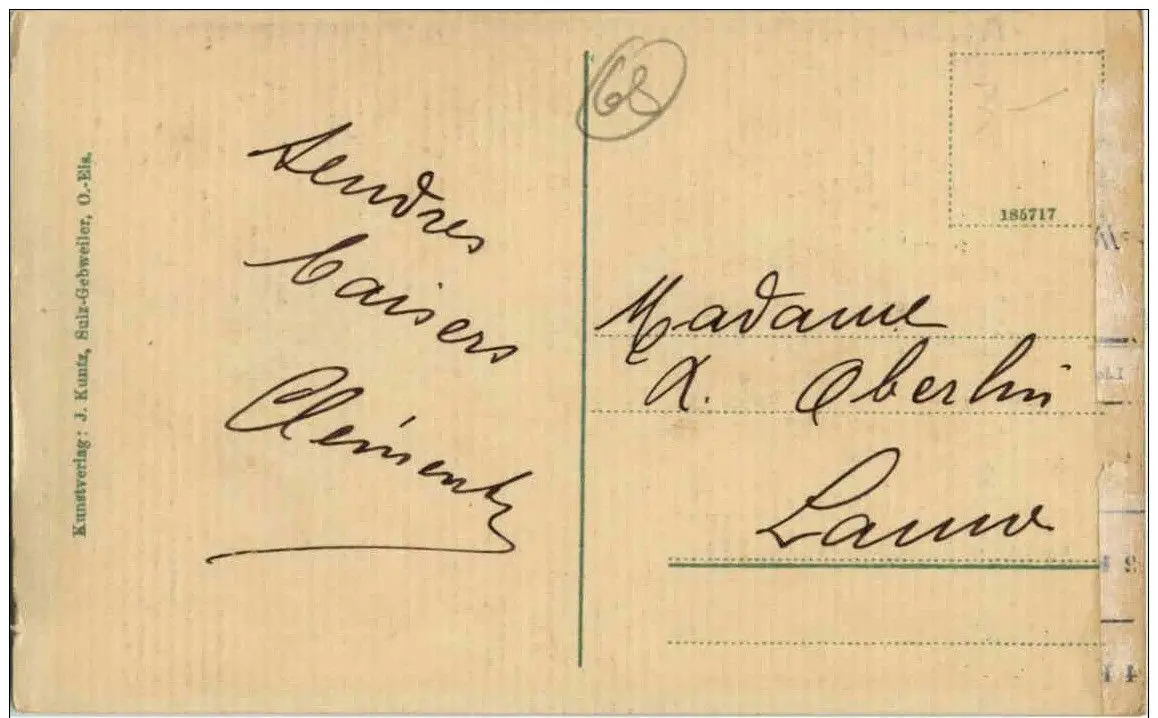 Kunstverlag: J. Kuntz, Sulz-Gebweiler, O.-Els.
tendres
baisers
Clementz
68
185717
Madame
X. Oberlin
Lauw